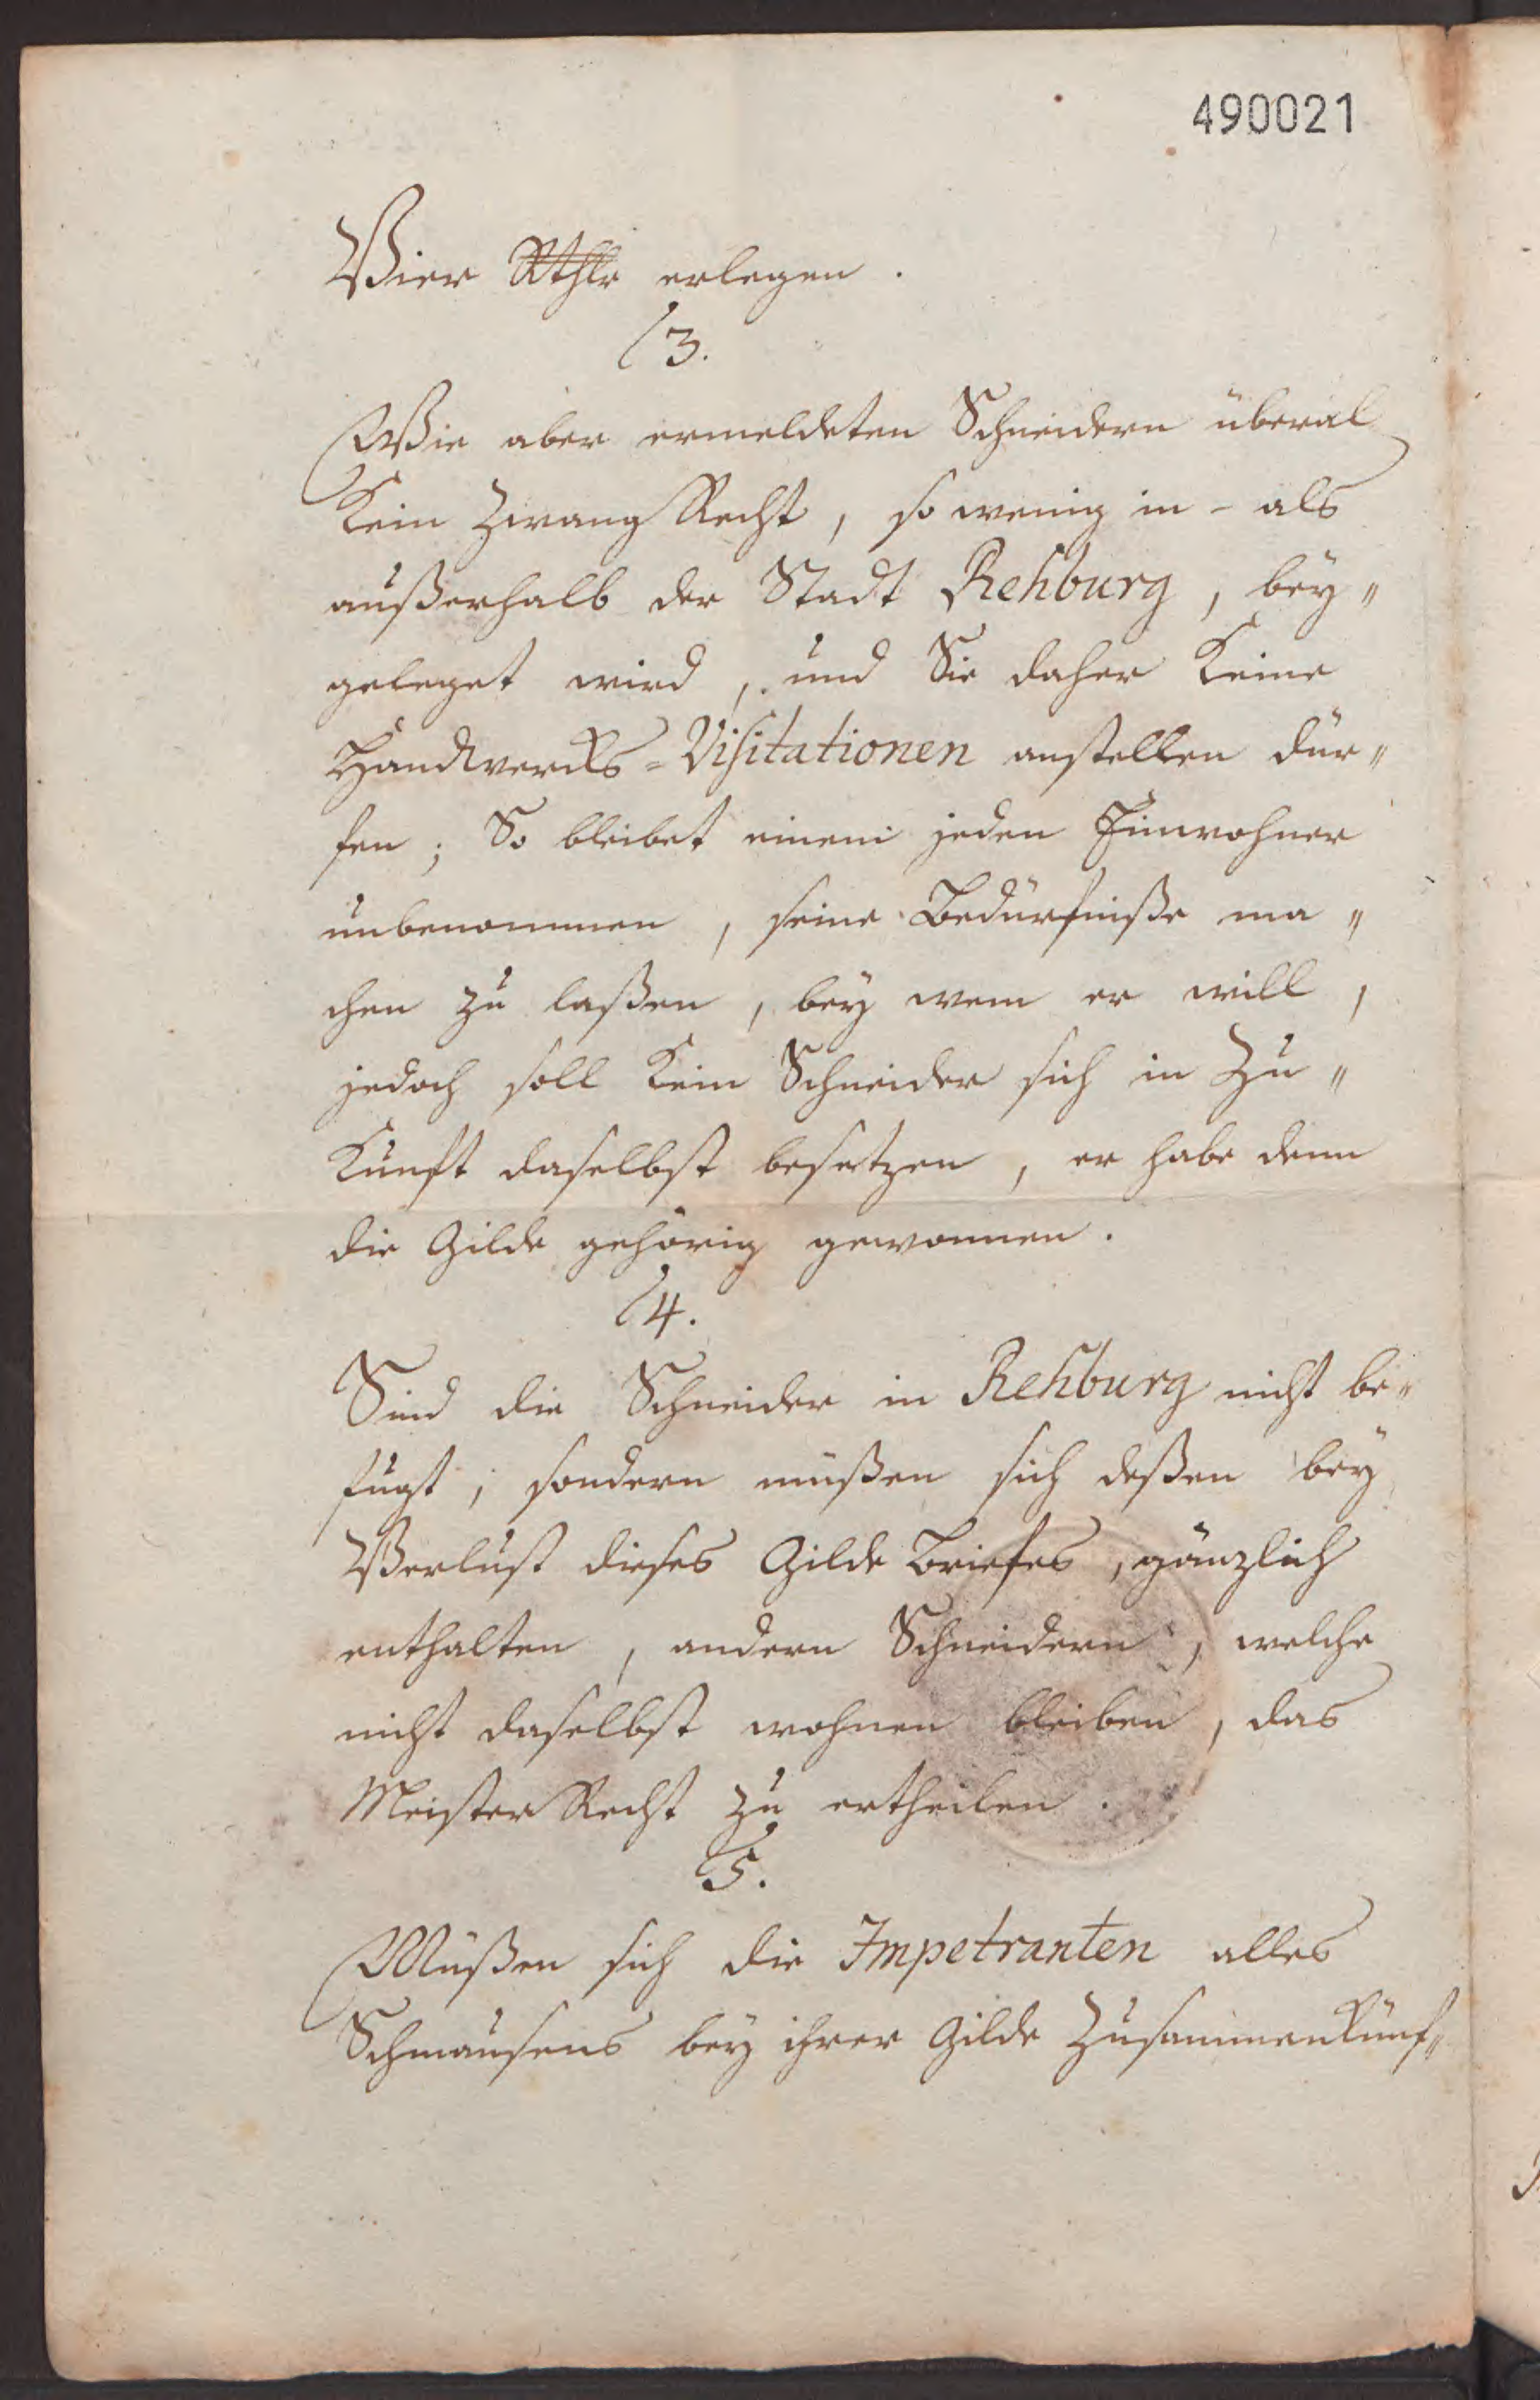 490021
Vier Rthlr erlegen.
3.
Wie aber ermeldeten Schneidern überal
Kein Zwang Recht, so wenig in - als
außerhalb der Stadt Rehburg, bey„
geleget wird, und Sie daher Keine
Handwercks-Visitationen anstellen dür„
fen; So bleibet einem jeden Einwohner
unbenommen, seine Bedürfniße ma„
chen zu laßen, bey wem er will,
jedoch soll Kein Schneider sich in Zu„
Kunft daselbst besetzen, er habe denn
die Gilde gehörig gewonnen.
4.
Sind die Schneider in Rehburg nicht be„
fugt, sondern müßen sich deßen bey
Verlust dieses Gilde Briefes, gänzlich
enthalten, andern Schneidern, welche
nicht daselbst wohnen bleiben, das
Meister Recht zu ertheilen.
5.
Müßen sich die Impetranten alles
Schmausens bey ihrer Gilde Zusammenkünf„